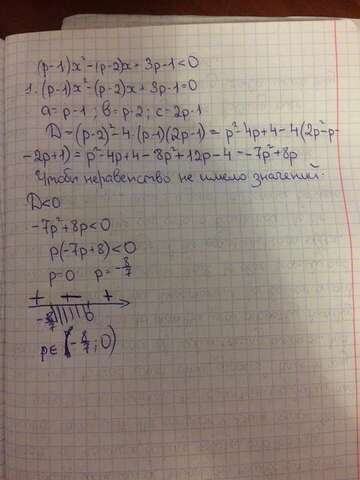 (p-1)x²-(p-2)x+3p-1<0
1.(p-1)x²-(p-2)x+3p-1=0
a=p-1; b=p-2; c=2p-1
D=(p-2)²-4·(p-1)(2p-1)=p²-4p+4-4(2p²-p-
-2p+1)=p²-4p+4-8p²+12p-4=-7p²+8p
Чтобы неравенство не имело значений:
D<0
-7p²+8p<0
p(-7p+8)<0
p=0 p=-8/7
+ - +
-8/7 0
p∈(-8/7;0)